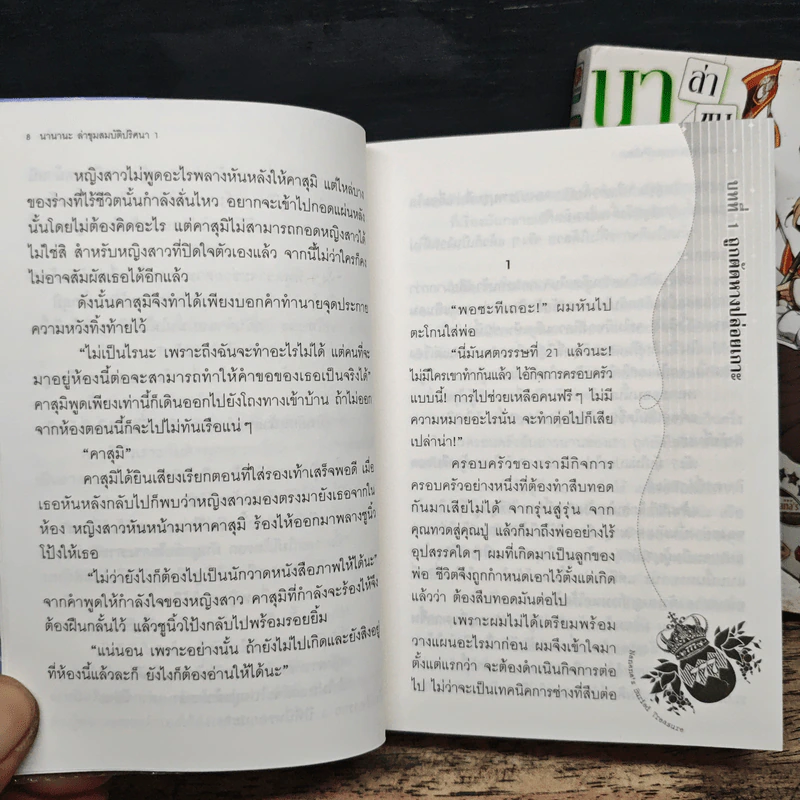 8 นานานะ ล่าขุมสมบัติปริศนา 1
หญิงสาวไม่พูดอะไรพลางหันหลังให้คาสุมิ แต่ไหล่บาง
ของร่างที่ไร้ชีวิตนั้นกำลังสั่นไหว อยากจะเข้าไปกอดแผ่นหลัง
นั้นโดยไม่ต้องคิดอะไร แต่คาสุมิไม่สามารถกอดหญิงสาวได้
ไม่ใช่สิ สำหรับหญิงสาวที่ปิดใจตัวเองแล้ว จากนี้ไม่ว่าใครก็คง
ไม่อาจสัมผัสเธอได้อีกแล้ว
ดังนั้นคาสุมิจึงทำได้เพียงบอกคำทำนายจุดประกาย
ความหวังทิ้งท้ายไว้
“ไม่เป็นไรนะ เพราะถึงฉันจะทำอะไรไม่ได้ แต่คนที่จะ
มาอยู่ห้องนี้ต่อจะสามารถทำให้คำขอของเธอเป็นจริงได้”
คาสุมิพูดเพียงเท่านี้ก็เดินออกไปยังโถงทางเข้าบ้าน ถ้าไม่ออก
จากห้องตอนนี้ก็จะไปไม่ทันเรือแน่ๆ
“คาสุมิ”
คาสุมิได้ยินเสียงเรียกตอนที่ใส่รองเท้าเสร็จพอดี เมื่อ
เธอหันหลังกลับไปก็พบว่าหญิงสาวมองตรงมายังเธอจากใน
ห้อง หญิงสาวหันหน้ามาหาคาสุมิ ร้องไห้ออกมาพลางชูนิ้ว
โป้งให้เธอ
“ไม่ว่ายังไงก็ต้องไปเป็นนักวาดหนังสือภาพให้ได้นะ”
จากคำพูดให้กำลังใจของหญิงสาว คาสุมิที่กำลังจะร้องไห้จึง
ต้องฝืนกลั้นไว้ แล้วชูนิ้วโป้งกลับไปพร้อมรอยยิ้ม
“แน่นอน เพราะอย่างนั้น ถ้ายังไม่ไปเกิดและยังสิงอยู่
ที่ห้องนี้แล้วละก็ ยังไงก็ต้องอ่านให้ได้นะ”
บทที่ 1 ถูกตัดหางปล่อยเกาะ
1
“พอซะทีเถอะ!” ผมหันไป
ตะโกนใส่พ่อ
“นี่มันศตวรรษที่ 21 แล้วนะ!
ไม่มีใครเขาทำกันแล้ว ไอ้กิจการครอบครัว
แบบนี้! การไปช่วยเหลือคนฟรีๆ ไม่มี
ความหมายอะไรนั่น จะทำต่อไปก็เสีย
เปล่าน่า!”
ครอบครัวของเรามีกิจการ
ครอบครัวอย่างหนึ่งที่ต้องทำสืบทอด
กันมาเสียไม่ได้ จากรุ่นสู่รุ่น จาก
คุณทวดสู่คุณปู่ แล้วก็มาถึงพ่ออย่างไร้
อุปสรรคใดๆ ผมที่เกิดมาเป็นลูกของ
พ่อ ชีวิตจึงถูกกำหนดเอาไว้ตั้งแต่เกิด
แล้วว่า ต้องสืบทอดมันต่อไป
เพราะผมไม่ได้เตรียมพร้อม
วางแผนอะไรมาก่อน ผมจึงเข้าใจมา
ตั้งแต่แรกว่า จะต้องดำเนินกิจการต่อ
ไป ไม่ว่าจะเป็นเทคนิคการช่างที่สืบต่อ
Nanana's Buried Treasure
นา
ล่า